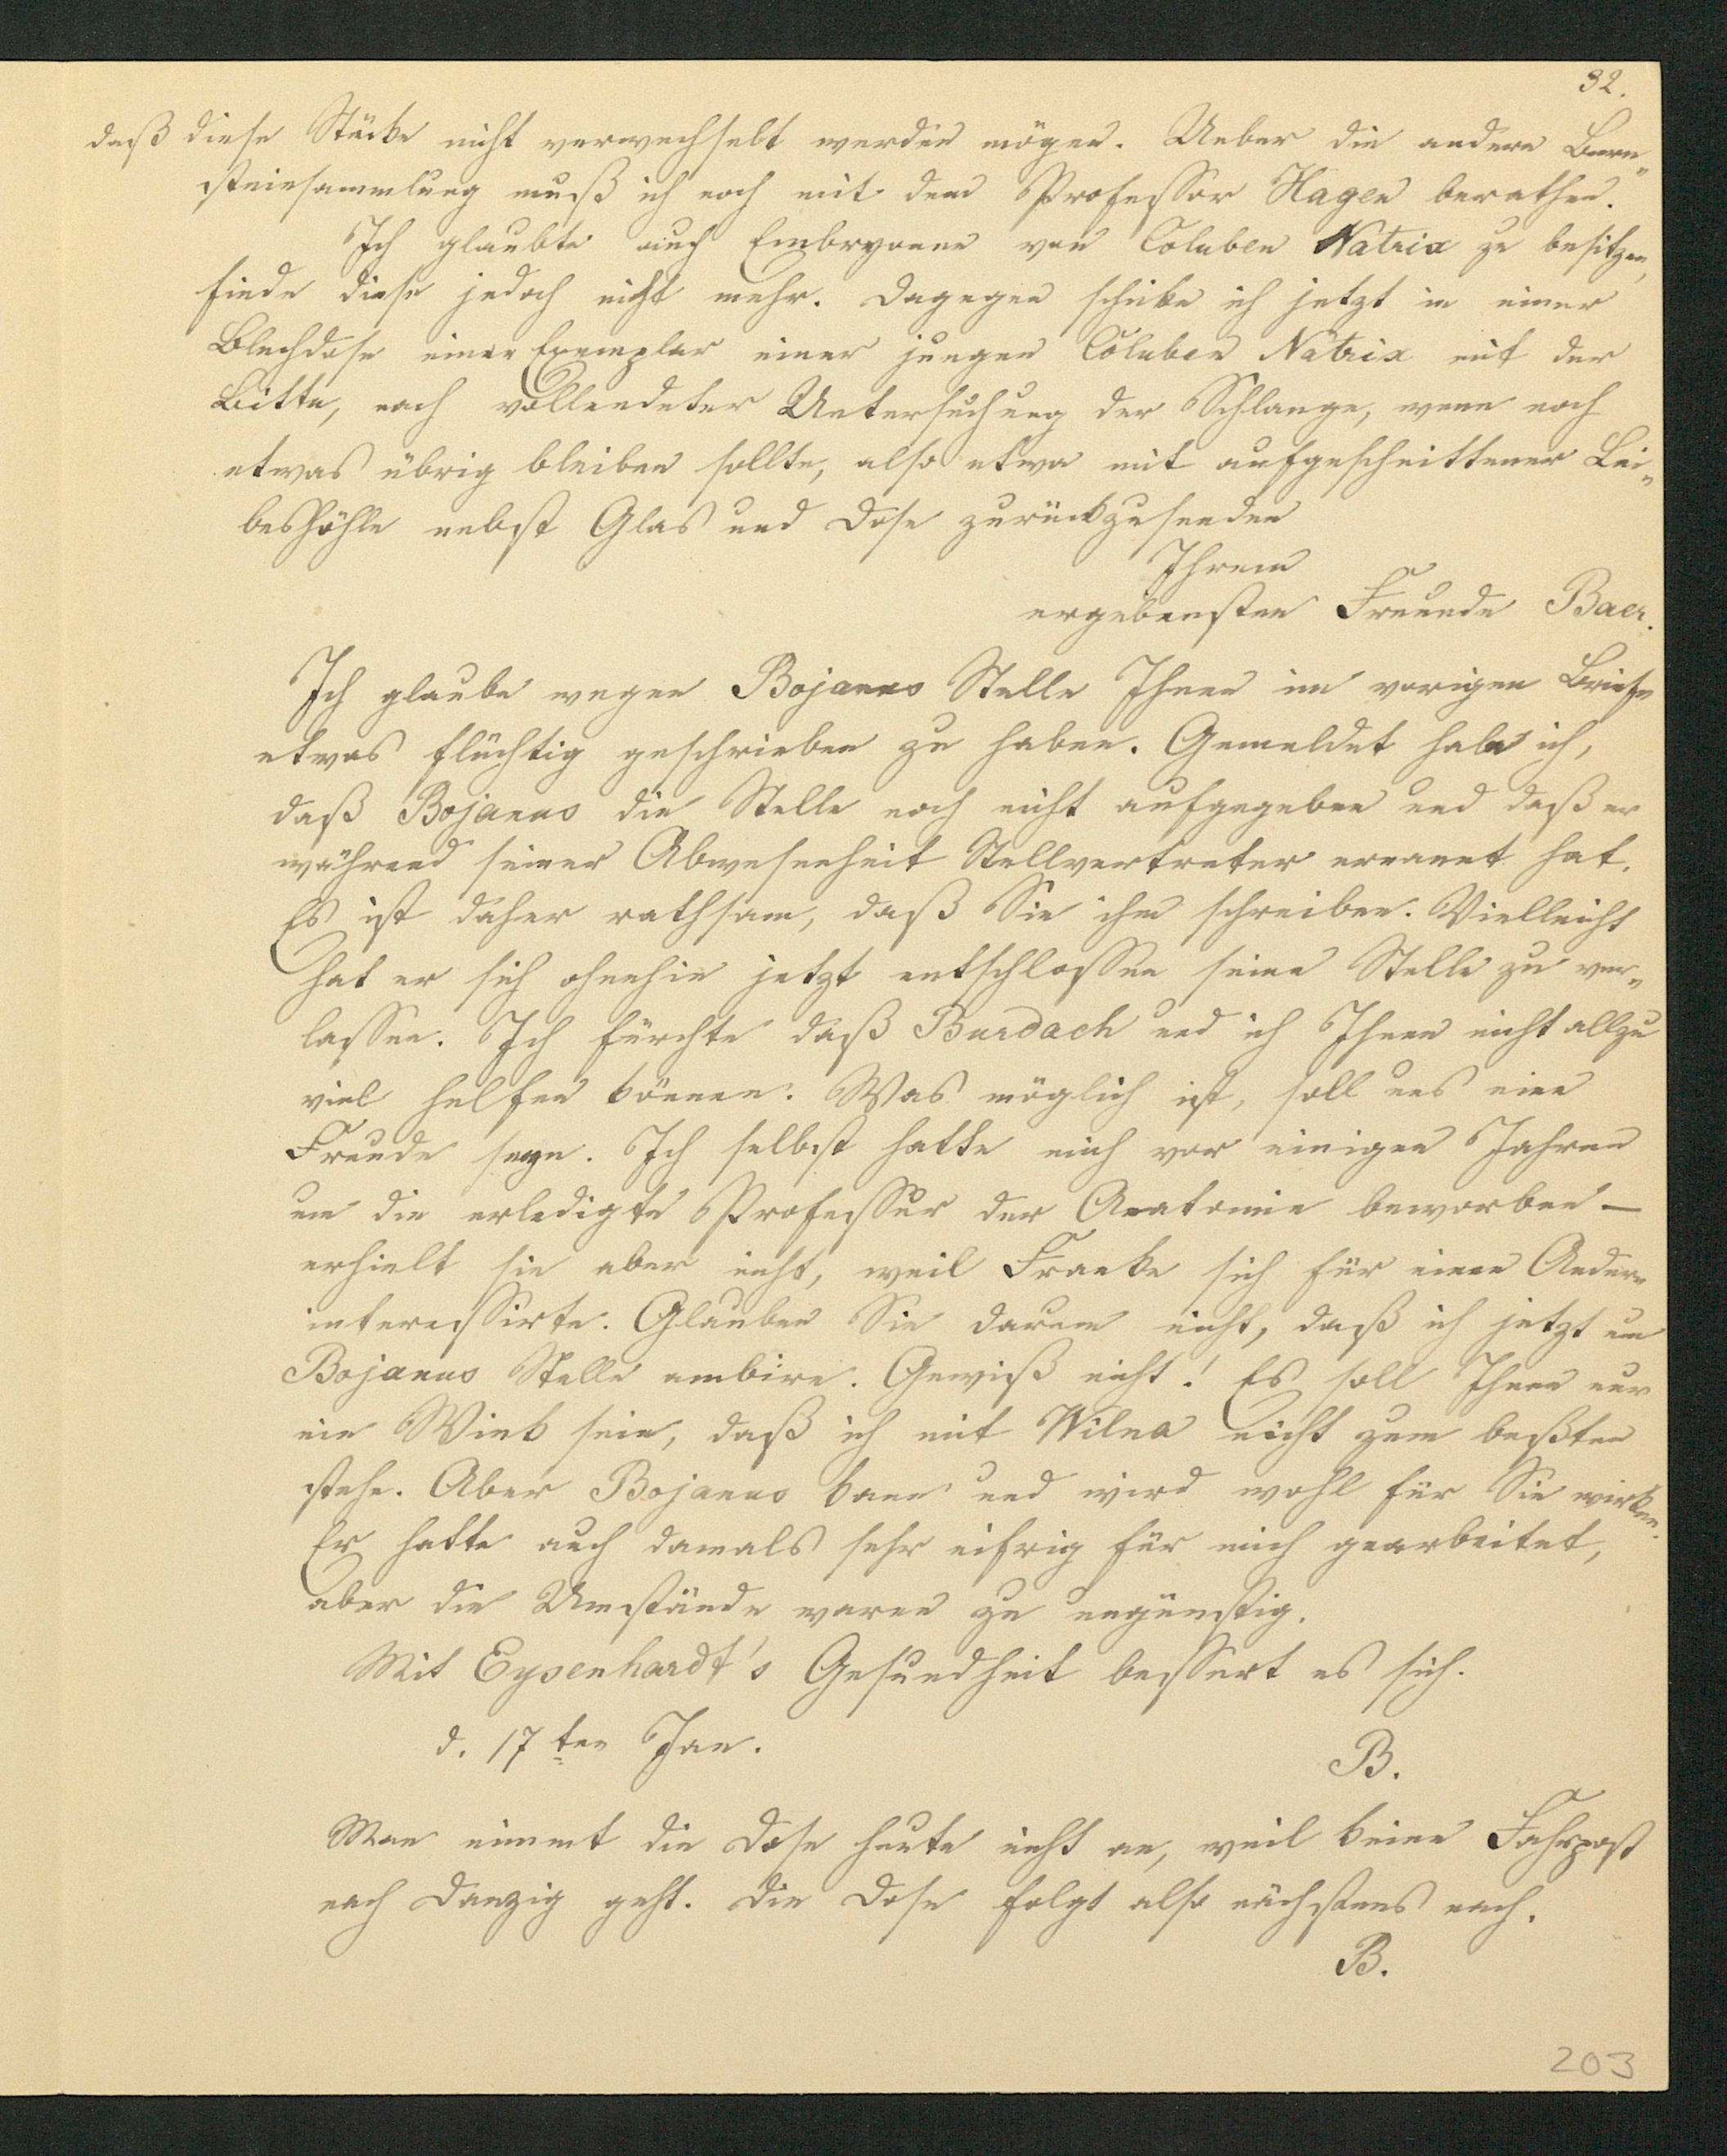 32.
daß diese Stücke nicht verwechselt werden mögen. Ueber die andere Bern„
steinsammlung muß ich noch mit dem Professor Hagen berathen.
Ich glaubte auch Embryonen von Coluber Natrix zu besitzen,
finde diese jedoch nicht mehr. Dagegen schicke ich jetzt in einer
Blechdose einer Exemplar einer jungen Coluber Natrix mit der
Bitte, nach vollendeter Untersuchung der Schlange, wenn noch
etwas übrig bleiben sollte, also etwa mit aufgeschnittener Lei„
beshöhle nebst Glas und Dose zurückzusenden
Ihrem
ergebensten Freunde Baer.
Ich glaube wegen Bojanus Stelle Ihnen im vorigen Briefe
etwas flüchtig geschrieben zu haben. Gemeldet habe ich,
daß Bojanus die Stelle noch nicht aufgegeben und daß er
während seiner Abwesenheit Stellvertreter ernannt hat.
Es ist daher rathsam, daß Sie ihm schreiben. Vielleicht
hat er sich ohnehin jetzt entschlossen seine Stelle zu ver„
lassen. Ich fürchte daß Burdach und ich Ihnen nicht allzu
viel helfen können. Was möglich ist, soll uns eine
Freude seyn. Ich selbst hatte mich vor einigen Jahren
um die erledigte Professur der Anatomie beworben —
erhielt sie aber nicht, weil Franke sich für einen Andern
interessirte. Glauben Sie darum nicht, daß ich jetzt um
Bojanus Stelle ambire. Gewiß nicht! Es soll Ihnen nur
ein Wink sein, daß ich mit Wilna nicht zum beßten
stehe. Aber Bojanus kann und wird wohl für Sie wirken.
Er hatte auch damals sehr eifrig für mich gearbeitet,
aber die Umstände waren zu ungünstig.
Mit Eysenhardt's Gesundheit bessert es sich.
d. 17ten Jan.
B.
Man nimmt die Dose heute nicht an, weil keine Fahrpost
nach Danzig geht. Die Dose folgt also nächstens nach.
B.
203